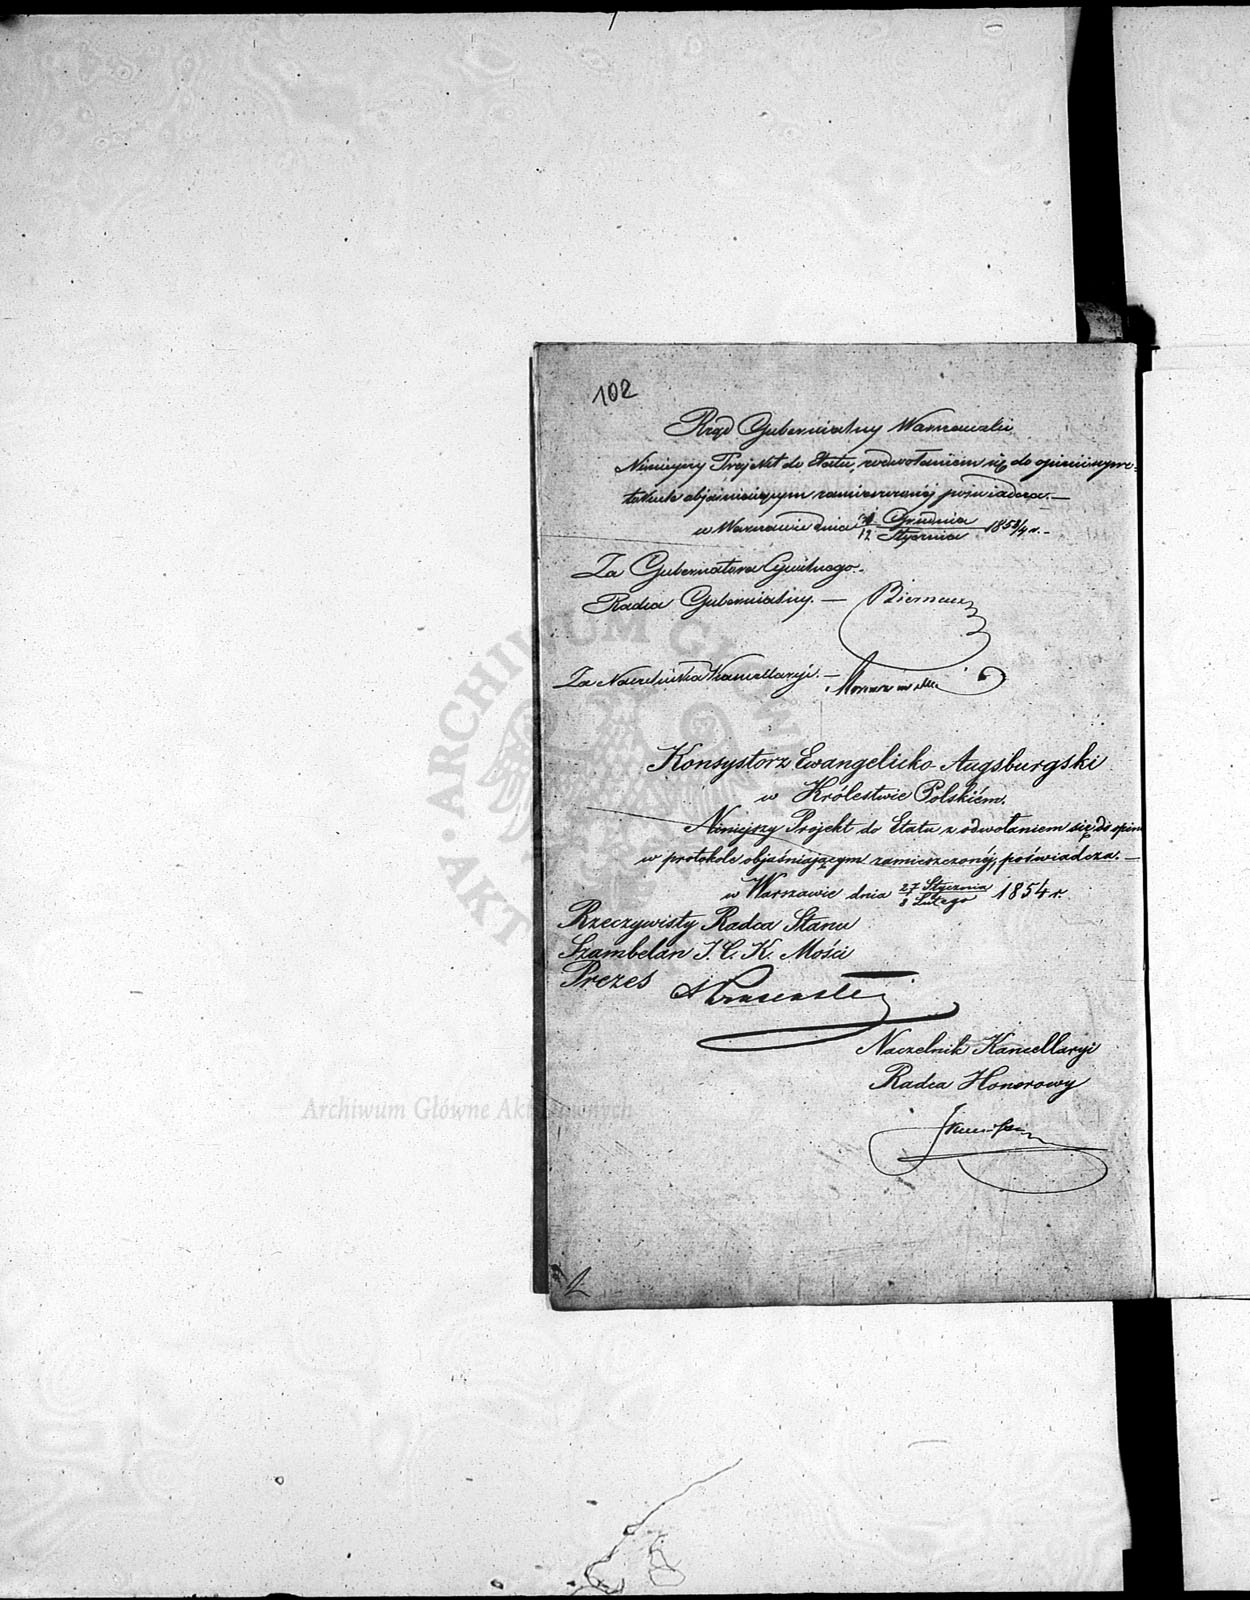 102
Rząd Gubernialny Warszawski
Niniejszy Projekt do Etatu, z odwołaniem się do opinii w pro-
tokule objaśniającym zamieszczonéj poświadcza.—
w Warszawie dnia 31/12 Grudnia/Stycznia 1853/4 r.—
Za Gubernatora Cywilnego.
Radca Gubernialny.— Biernacki
Za Naczelnika Kancellaryi.—
Konsystorz Ewangelicko Augsburgski
w Królestwie Polskiém.
Niniejszy Projekt do Etatu z odwołaniem się do opinii
w protokole objaśniającym zamieszczonéj, poświadcza.—
w Warszawie dnia 27 Stycznia/8 Lutego 1854 r.
Rzeczywisty Radca Stanu
Szambelan J. C. K. Mości
Prezes
Naczelnik Kancellaryi
Radca Honorowy
ARCHIWUM GŁÓWNE AKT
Archiwum Główne Akt Dawnych